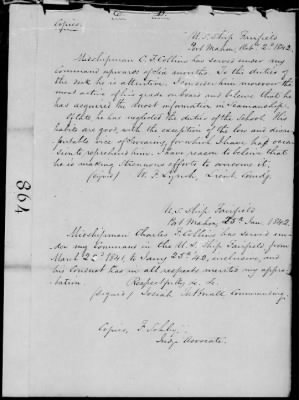 Copies.
U.S. Ship Fairfield
Port Mahon, Feb. 2d 1842.
Midshipman C. F. Collins has served under my
command upwards of six months. To the duties of
the deck he is attentive. I consider him amongst the
most active of his grade on board and believe that he
has acquired the most information in Seamanship.
Of late he has neglected the duties of the school. His
habits are good, with the exception of the low and disre-
putable vice of swearing, for which I have had occa-
sion to reprehend him. I have reason to believe that
he is making strenuous efforts to overcome it.
(signed) W. F. Lynch, Lieut. Comdg.
864
U.S. Ship Fairfield
Port Mahon, 25th Jan. 1842.
Midshipman Charles F. Collins has served un-
der my command in the U.S. Ship Fairfield from
March 22d 1841, to Jany 25th 42, inclusive, and
his conduct has in all respects merited my appro-
bation. Respectfully &c.
(signed) Commanding.
Copies, F.
Judge Advocate.